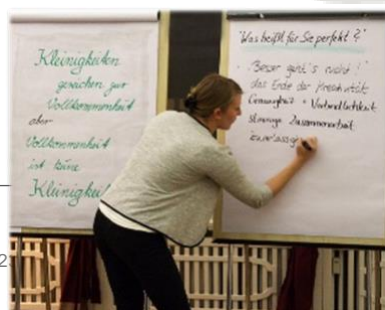 Kleinigkeiten
gereichen zur
Vollkommenheit
aber
Vollkommenheit
ist keine
Kleinigkeit
"Was heißt für Sie perfekt?"
"Besser geht's nicht!"
das Ende der Kreativität
Genauigkeit + Verbindlichkeit
stimmige Zusammenarbeit
zuverlässig
2